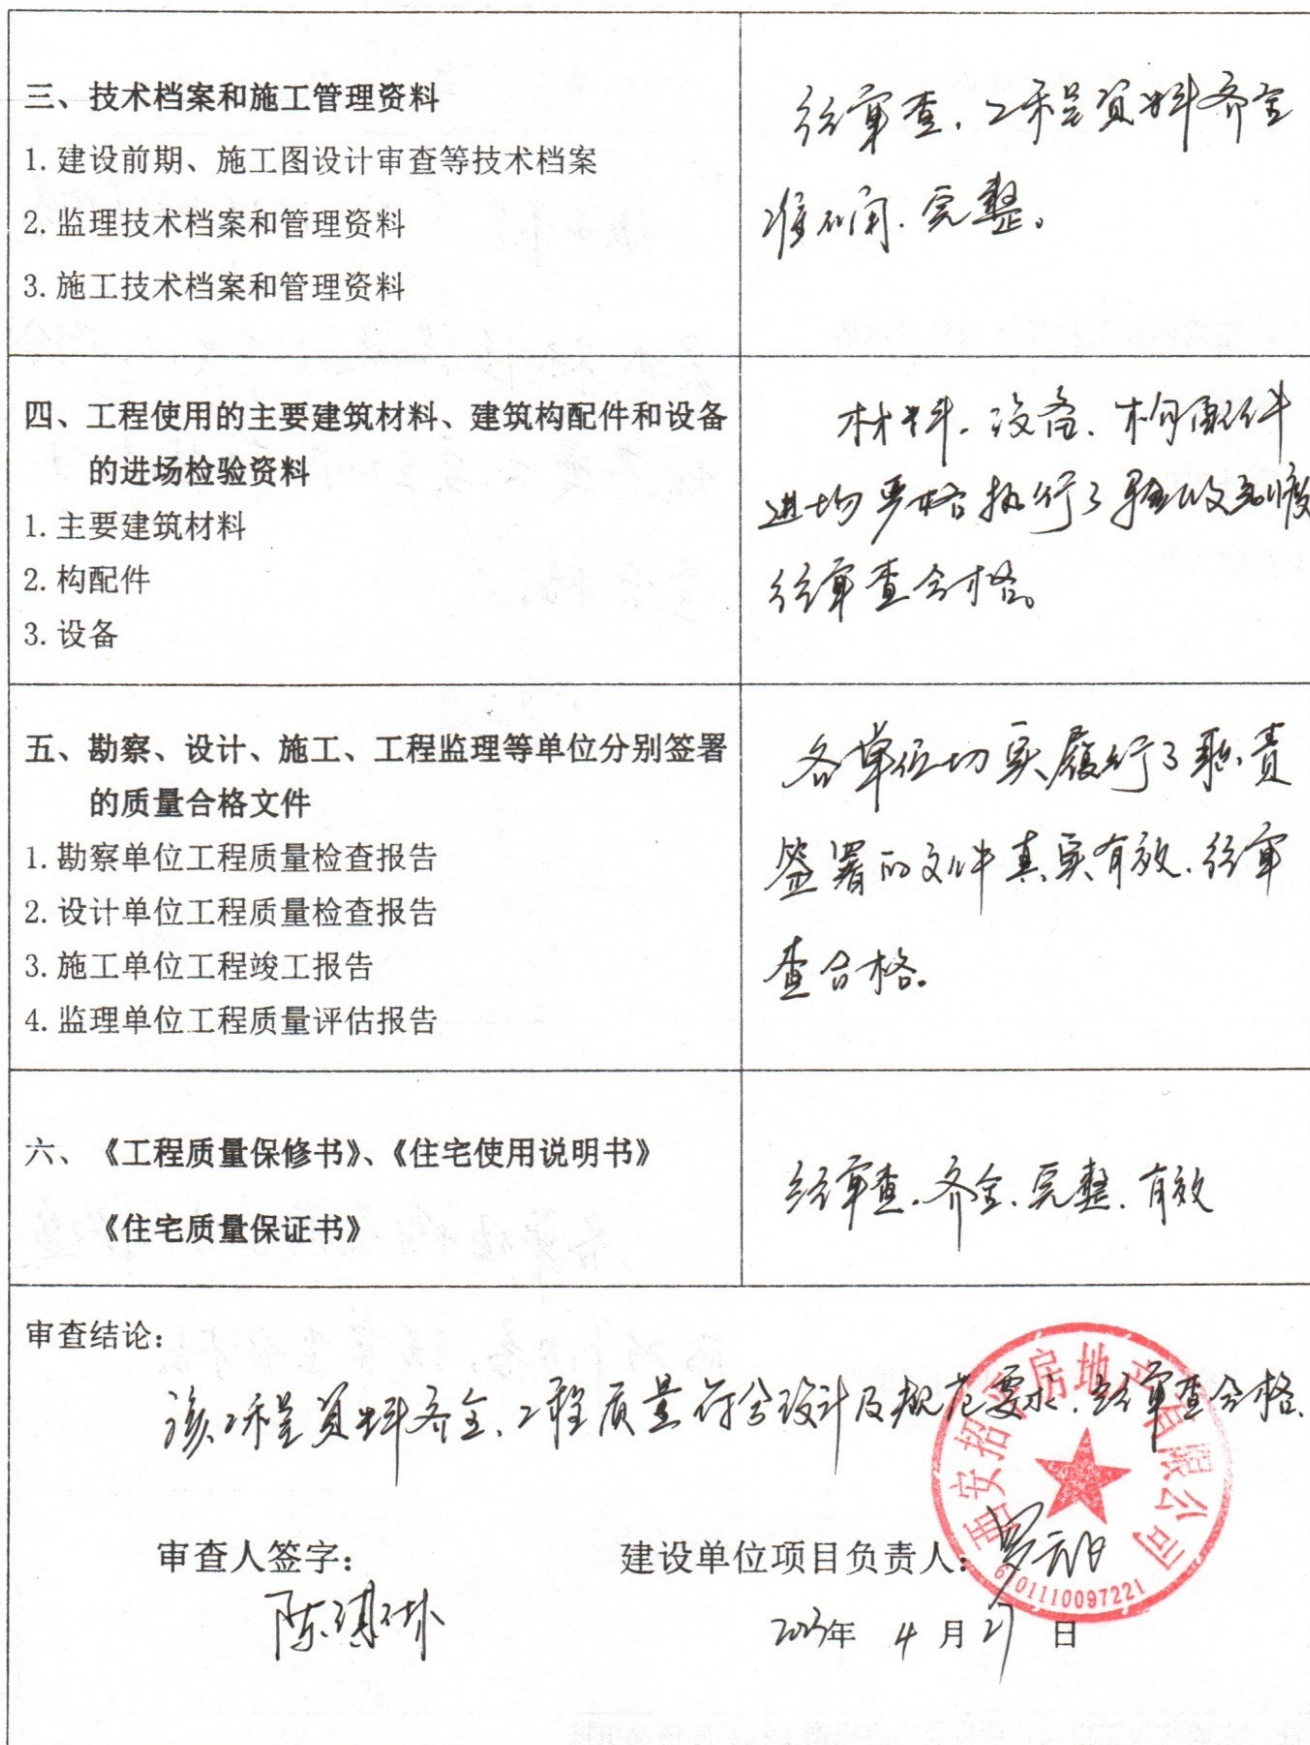 三、技术档案和施工管理资料
1.建设前期、施工图设计审查等技术档案
2.监理技术档案和管理资料
3.施工技术档案和管理资料
经审查、工程资料齐全
准确、完整。
四、工程使用的主要建筑材料、建筑构配件和设备
的进场检验资料
1.主要建筑材料
2.构配件
3.设备
材料、设备、构配件
进场严格执行了验收制度
经审查合格。
五、勘察、设计、施工、工程监理等单位分别签署
的质量合格文件
1.勘察单位工程质量检查报告
2.设计单位工程质量检查报告
3.施工单位工程竣工报告
4.监理单位工程质量评估报告
各单位切实履行了职责
签署的文件真实有效、经审
查合格。
六、《工程质量保修书》、《住宅使用说明书》
《住宅质量保证书》
经审查、齐全、完整、有效
审查结论：
该工程资料齐全、工程质量符合设计及规范要求、经审查合格、
西安招 房地产有限公司
6101110097221
审查人签字：
陈
建设单位项目负责人：罗
2023年 4月27日